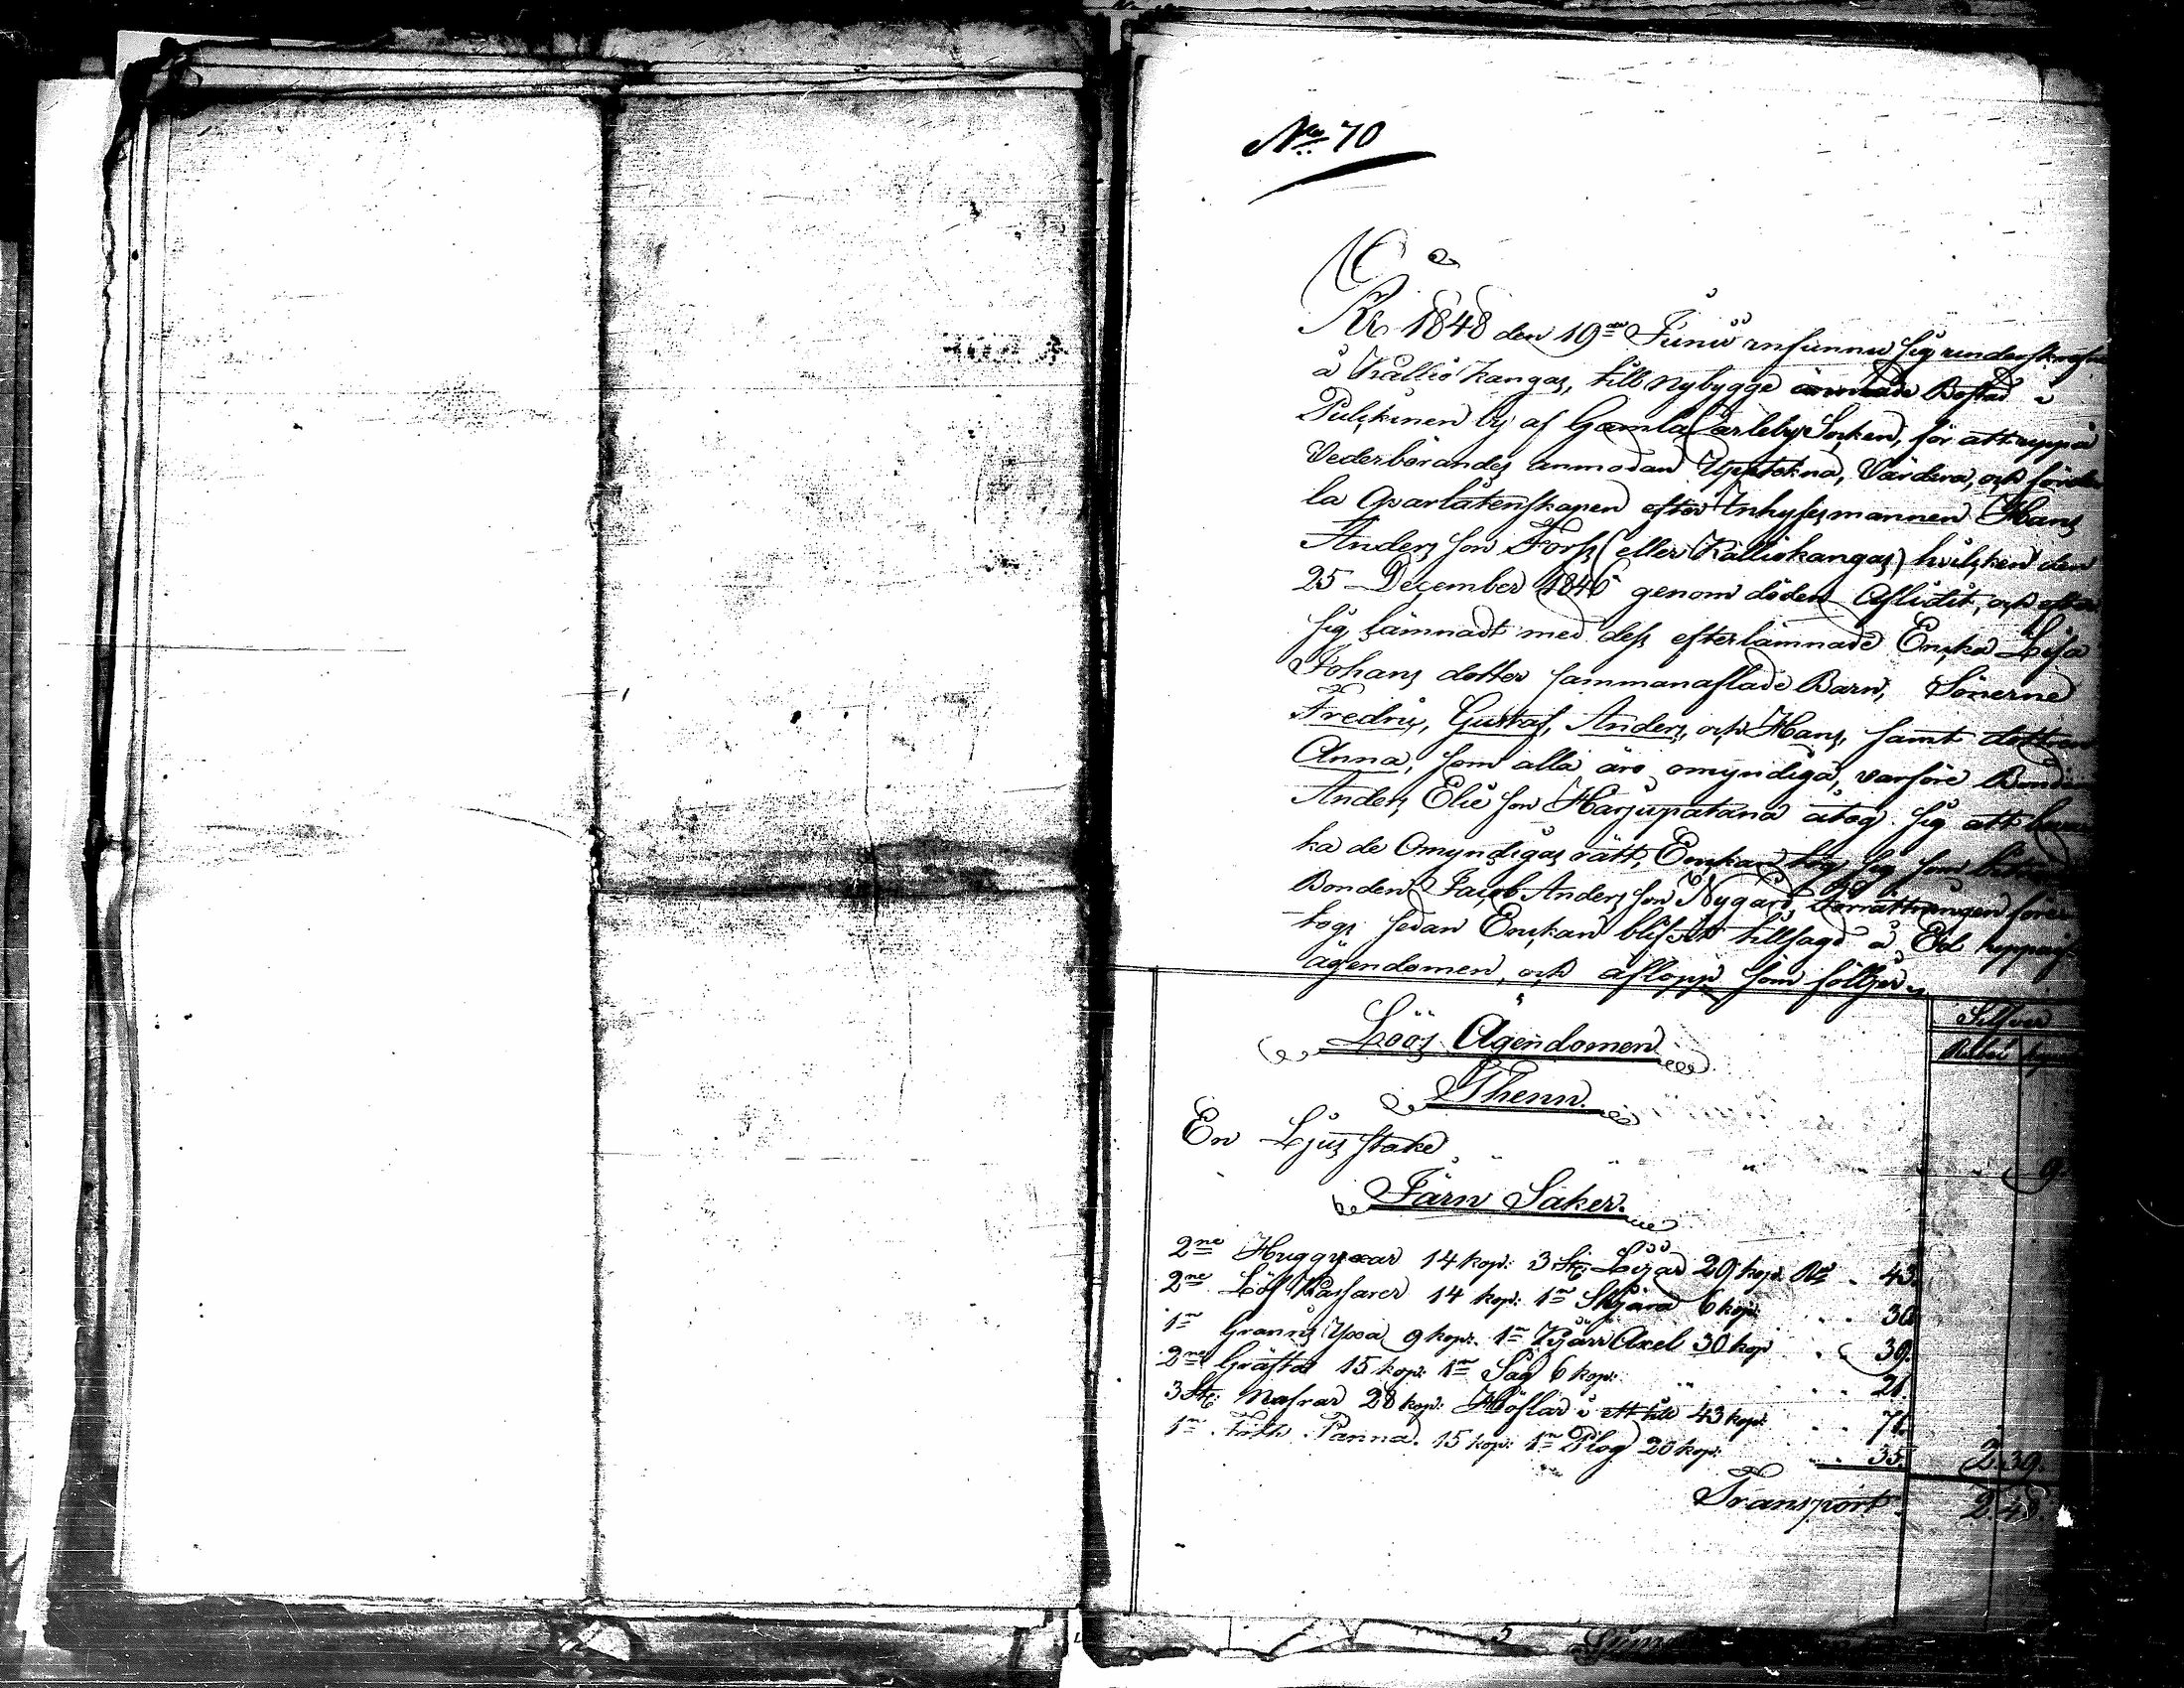 No 70
År 1848 den 19de Junii infunno sig undertecknade
å Kallio kangas, till nybygge ämnade Bostad i
Pulkinen by af Gamla Carleby Socken, för att uppå
Vederbörandes anmodan Upptekna, Värdera, och förde
la Qvarlåtenskapen efter Inhysesmannen Hans
Anders son Forss (eller Kalliokangas) hvilken den
25 December 1846 genom döden Aflidit, och efter
sig lämnadt med dess efterlämnade Encka Lisa
Johans dotter sammanaflade Barn, Sönerne
Fredric, Gustaf, Anders, och Hans, samt dottren
Anna, som alla äro omyndiga, varföre Bonden
Anders Elie son Harjupatana åtog sig att beva
ka de Omyndigas rätt, Enckan tog sig som
Bonden Jacob Anders son Nygård, Förrättningen före
togs sedan Enckan blifvit tillsagd å Ed uppgif
ägendomen, och aflopp som följer
Silfver
Löös Ägendomen
Rubel kop
Thenn.
En Ljus stake 9.
Järn Saker.
2ne Huggyxar 14 kop: 3 St: Lijar 29 kop: 43.
2ne Löf Kassarer 14 kop: 1n Skjära 6 kop: 30
1n Grannis Yxa 9 kop: 1n Kjärr Axel 30 kop 39.
2ne Gräftor 15 kop: 1n Såg 6 kop: 21.
3 St: Nafrar 28 kop: Höflar i ett till 43 kop: 71.
1n Foth Panna 15 kop: 1n Plog 20 kop: 35. 2.39.
Transport 2.48.